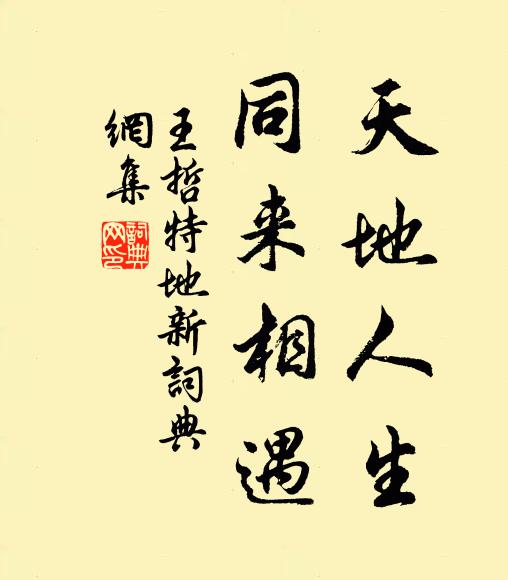 天地人生
同来相遇
王哲特地新詞典
網集
詞典
网印